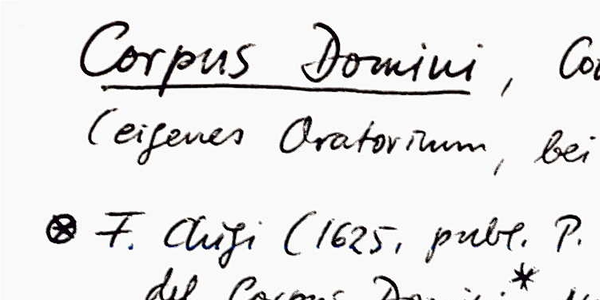 Corpus Domini, Co
(eigenes Oratorium, bei
⊗ F. Chigi (1625, publ. P.
del Corpus Domini *